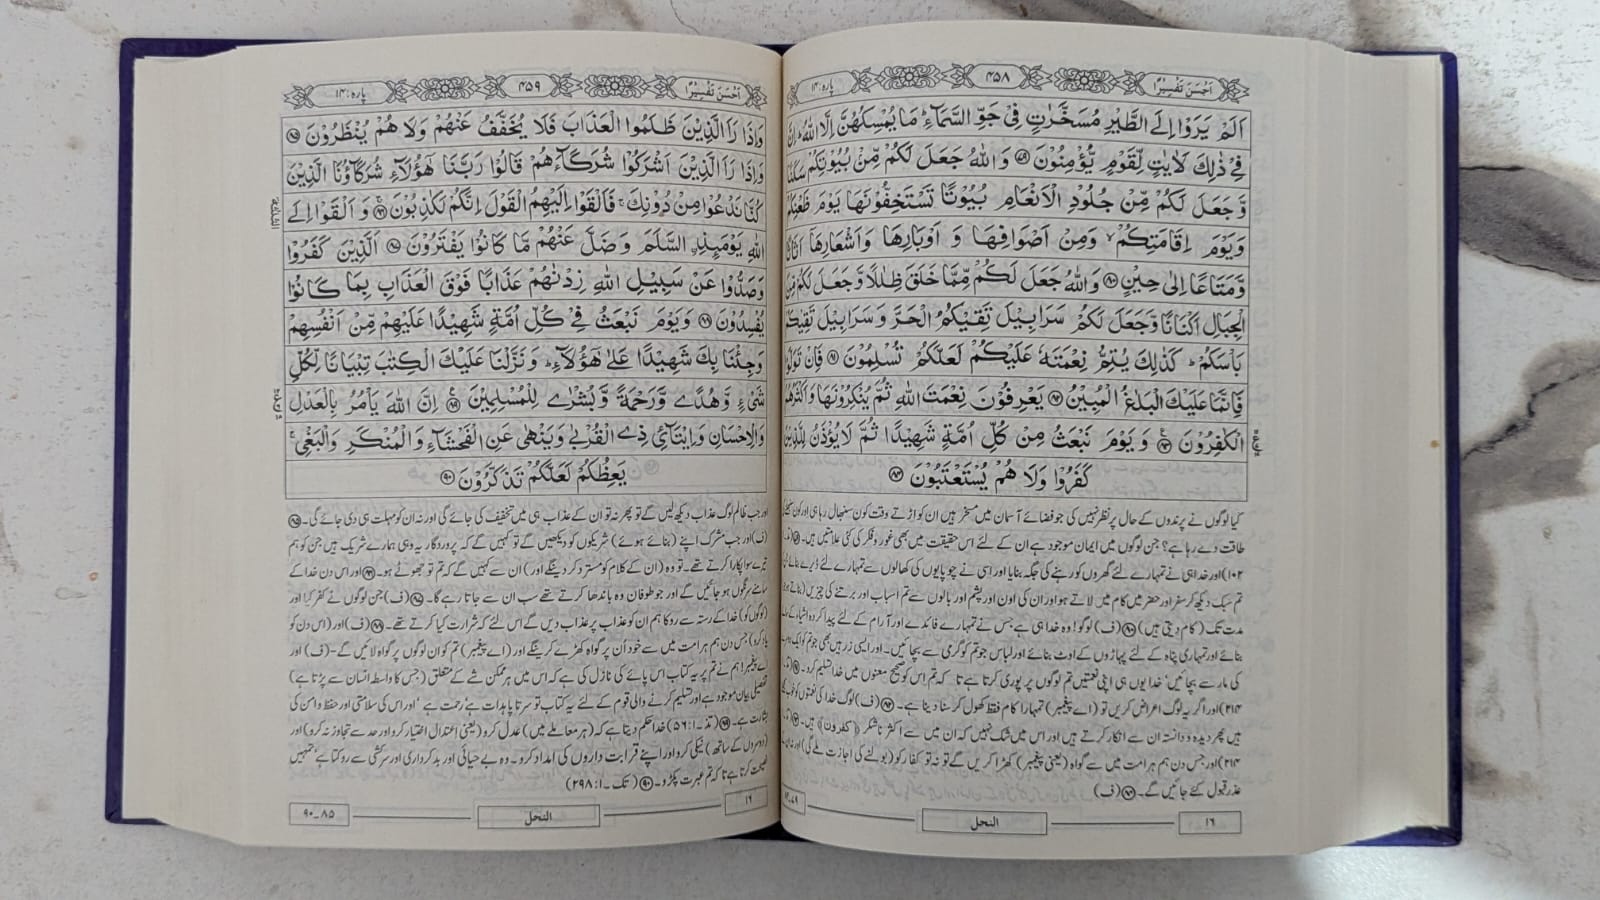 اَحْسَنُ تَفْسِيْرًا
۴۵۸
پارہ:۱۴
اَلَمْ يَرَوْا اِلَى الطَّيْرِ مُسَخَّرٰتٍ فِيْ جَوِّ السَّمَآءِ ؕ مَا يُمْسِكُهُنَّ اِلَّا اللّٰهُ ؕ اِنَّ
فِيْ ذٰلِكَ لَاٰيٰتٍ لِّقَوْمٍ يُّؤْمِنُوْنَ ﴿۷۹﴾ وَ اللّٰهُ جَعَلَ لَكُمْ مِّنْۢ بُيُوْتِكُمْ سَكَنًا
وَّ جَعَلَ لَكُمْ مِّنْ جُلُوْدِ الْاَنْعَامِ بُيُوْتًا تَسْتَخِفُّوْنَهَا يَوْمَ ظَعْنِكُمْ
وَ يَوْمَ اِقَامَتِكُمْ ۙ وَ مِنْ اَصْوَافِهَا وَ اَوْبَارِهَا وَ اَشْعَارِهَاۤ اَثَاثًا
وَّ مَتَاعًا اِلٰى حِيْنٍ ﴿۸۰﴾ وَ اللّٰهُ جَعَلَ لَكُمْ مِّمَّا خَلَقَ ظِلٰلًا وَّ جَعَلَ لَكُمْ مِّنَ
الْجِبَالِ اَكْنَانًا وَّ جَعَلَ لَكُمْ سَرَابِيْلَ تَقِيْكُمُ الْحَرَّ وَ سَرَابِيْلَ تَقِيْكُمْ
بَاْسَكُمْ ؕ كَذٰلِكَ يُتِمُّ نِعْمَتَهٗ عَلَيْكُمْ لَعَلَّكُمْ تُسْلِمُوْنَ ﴿۸۱﴾ فَاِنْ تَوَلَّوْا
فَاِنَّمَا عَلَيْكَ الْبَلٰغُ الْمُبِيْنُ ﴿۸۲﴾ يَعْرِفُوْنَ نِعْمَتَ اللّٰهِ ثُمَّ يُنْكِرُوْنَهَا وَ اَكْثَرُهُمُ
الْكٰفِرُوْنَ ﴿۸۳﴾ وَ يَوْمَ نَبْعَثُ مِنْ كُلِّ اُمَّةٍ شَهِيْدًا ثُمَّ لَا يُؤْذَنُ لِلَّذِيْنَ
كَفَرُوْا وَ لَا هُمْ يُسْتَعْتَبُوْنَ ﴿۸۴﴾
کیا لوگوں نے پرندوں کے حال پر نظر نہیں کی جو فضائے آسمان میں مسخر ہیں ان کو اڑتے وقت کون سنبھال رہا ہے اور کون
طاقت دے رہا ہے؟ جن لوگوں میں ایمان موجود ہے ان کے لئے اس حقیقت میں بھی غور و فکر کی کئی علامتیں ہیں۔
۱۰۲) اور خدا ہی نے تمہارے لئے گھروں کو رہنے کی جگہ بنایا اور اسی نے چوپایوں کی کھالوں سے تمہارے لئے ڈیرے بنائے
تم سبک دیکھ کر سفر اور حضر میں کام میں لاتے ہو اور ان کی اون اور پشم اور بالوں سے تم اسباب اور برتنے کی چیزیں
مدت تک (کام دیتی ہیں) ﴿۸۰﴾ (ف) لوگو! وہ خدا ہی ہے جس نے تمہارے فائدے اور آرام کے لئے پیدا کردہ اشیاء کے
بنائے اور تمہاری پناہ کے لئے پہاڑوں کے اوٹ بنائے اور لباس جو تم کو گرمی سے بچائیں۔ اور ایسی زرہیں بھی جو تم کو ایک
کی مار سے بچائیں' خدا یوں ہی اپنی نعمتیں تم لوگوں پر پوری کرتا ہے تاکہ تم اس کو صحیح معنوں میں خدا تسلیم کرو۔
۲۱۴) اور اگر یہ لوگ اعراض کریں تو (اے پیغمبر) تمہارا کام فقط کھول کر سنا دینا ہے۔ ﴿۸۲﴾ (ف) لوگ خدا کی نعمتوں کو خوب
ہیں پھر دیدہ و دانستہ ان سے انکار کرتے ہیں اور اس میں شک نہیں کہ ان میں سے اکثر ناشکر (کفرون) ہیں۔
۲۱۴) اور جس دن ہم ہر امت میں سے گواہ (یعنی پیغمبر) کھڑا کریں گے تو نہ تو کفار کو (بولنے کی اجازت ملے گی) اور نہ
عذر قبول کئے جائیں گے۔ ﴿۸۴﴾ (ف)
۱۶
النحل
اَحْسَنُ تَفْسِيْرًا
۴۵۹
پارہ:۱۴
وَ اِذَا رَاَ الَّذِيْنَ ظَلَمُوا الْعَذَابَ فَلَا يُخَفَّفُ عَنْهُمْ وَ لَا هُمْ يُنْظَرُوْنَ ﴿۸۵﴾
وَ اِذَا رَاَ الَّذِيْنَ اَشْرَكُوْا شُرَكَآءَهُمْ قَالُوْا رَبَّنَا هٰۤؤُلَآءِ شُرَكَآؤُنَا الَّذِيْنَ
كُنَّا نَدْعُوْا مِنْ دُوْنِكَ ۚ فَاَلْقَوْا اِلَيْهِمُ الْقَوْلَ اِنَّكُمْ لَكٰذِبُوْنَ ﴿۸۶﴾ وَ اَلْقَوْا اِلَى
اللّٰهِ يَوْمَئِذِ ۟السَّلَمَ وَ ضَلَّ عَنْهُمْ مَّا كَانُوْا يَفْتَرُوْنَ ﴿۸۷﴾ اَلَّذِيْنَ كَفَرُوْا
وَ صَدُّوْا عَنْ سَبِيْلِ اللّٰهِ زِدْنٰهُمْ عَذَابًا فَوْقَ الْعَذَابِ بِمَا كَانُوْا
يُفْسِدُوْنَ ﴿۸۸﴾ وَ يَوْمَ نَبْعَثُ فِيْ كُلِّ اُمَّةٍ شَهِيْدًا عَلَيْهِمْ مِّنْ اَنْفُسِهِمْ
وَ جِئْنَا بِكَ شَهِيْدًا عَلٰى هٰۤؤُلَآءِ ؕ وَ نَزَّلْنَا عَلَيْكَ الْكِتٰبَ تِبْيَانًا لِّكُلِّ
شَيْءٍ وَّ هُدًى وَّ رَحْمَةً وَّ بُشْرٰى لِلْمُسْلِمِيْنَ ﴿۸۹﴾ اِنَّ اللّٰهَ يَاْمُرُ بِالْعَدْلِ
وَ الْاِحْسَانِ وَ اِيْتَآئِ ذِي الْقُرْبٰى وَ يَنْهٰى عَنِ الْفَحْشَآءِ وَ الْمُنْكَرِ وَ الْبَغْيِ ۚ
يَعِظُكُمْ لَعَلَّكُمْ تَذَكَّرُوْنَ ﴿۹۰﴾
اور جب ظالم لوگ عذاب دیکھ لیں گے تو پھر نہ تو ان کے عذاب ہی میں تخفیف کی جائے گی اور نہ ان کو مہلت ہی دی جائے گی۔ ﴿۸۵﴾
(ف) اور جب مشرک اپنے (بنائے ہوئے) شریکوں کو دیکھیں گے تو کہیں گے کہ پروردگار یہ وہی ہمارے شریک ہیں جن کو ہم
تیرے سوا پکارا کرتے تھے۔ تو وہ (ان کے کلام کو مسترد کر دینگے اور) ان سے کہیں گے کہ تم تو جھوٹے ہو۔ ﴿۸۶﴾ اور اس دن خدا کے
سامنے سرنگوں ہو جائیں گے اور جو طوفان وہ باندھا کرتے تھے سب ان سے جاتا رہے گا۔ ﴿۸۷﴾ (ف) جن لوگوں نے کفر کیا اور
(لوگوں کو) خدا کے رستہ سے روکا ہم ان کو عذاب پر عذاب دیں گے اس لئے کہ شرارت کیا کرتے تھے۔ ﴿۸۸﴾ (ف) اور (اس دن کو
یاد کرو) جس دن ہم ہر امت میں سے خود اُن پر گواہ کھڑے کرینگے اور (اے پیغمبر) تم کو ان لوگوں پر گواہ لائیں گے۔ (ف) اور
اے پیغمبر! ہم نے تم پر یہ کتاب اس پائے کی نازل کی ہے کہ اس میں ہر ممکن شے کے متعلق (جس کا واسطہ انسان سے پڑتا ہے)
تفصیلی بیان موجود ہے اور تسلیم کرنے والی قوم کے لئے یہ کتاب تو سرتاپا ہدایت ہے' رحمت ہے' اور اس کی سلامتی اور حفظ و امن کی
بشارت ہے۔ ﴿۸۹﴾ (تذ۔۵۶:۱) خدا حکم دیتا ہے کہ (ہر معاملے میں) عدل کرو (یعنی اعتدال اختیار کرو اور حد سے تجاوز نہ کرو) اور
(دوسروں کے ساتھ) نیکی کرو اور اپنے قرابت داروں کی امداد کرو۔ وہ بے حیائی اور بدکرداری اور سرکشی سے روکتا ہے' تمہیں
نصیحت کرتا ہے تاکہ تم عبرت پکڑو۔ ﴿۹۰﴾ (تک ۔۲۹۸:۱)
۱۶
النحل
۸۵ـ۹۰